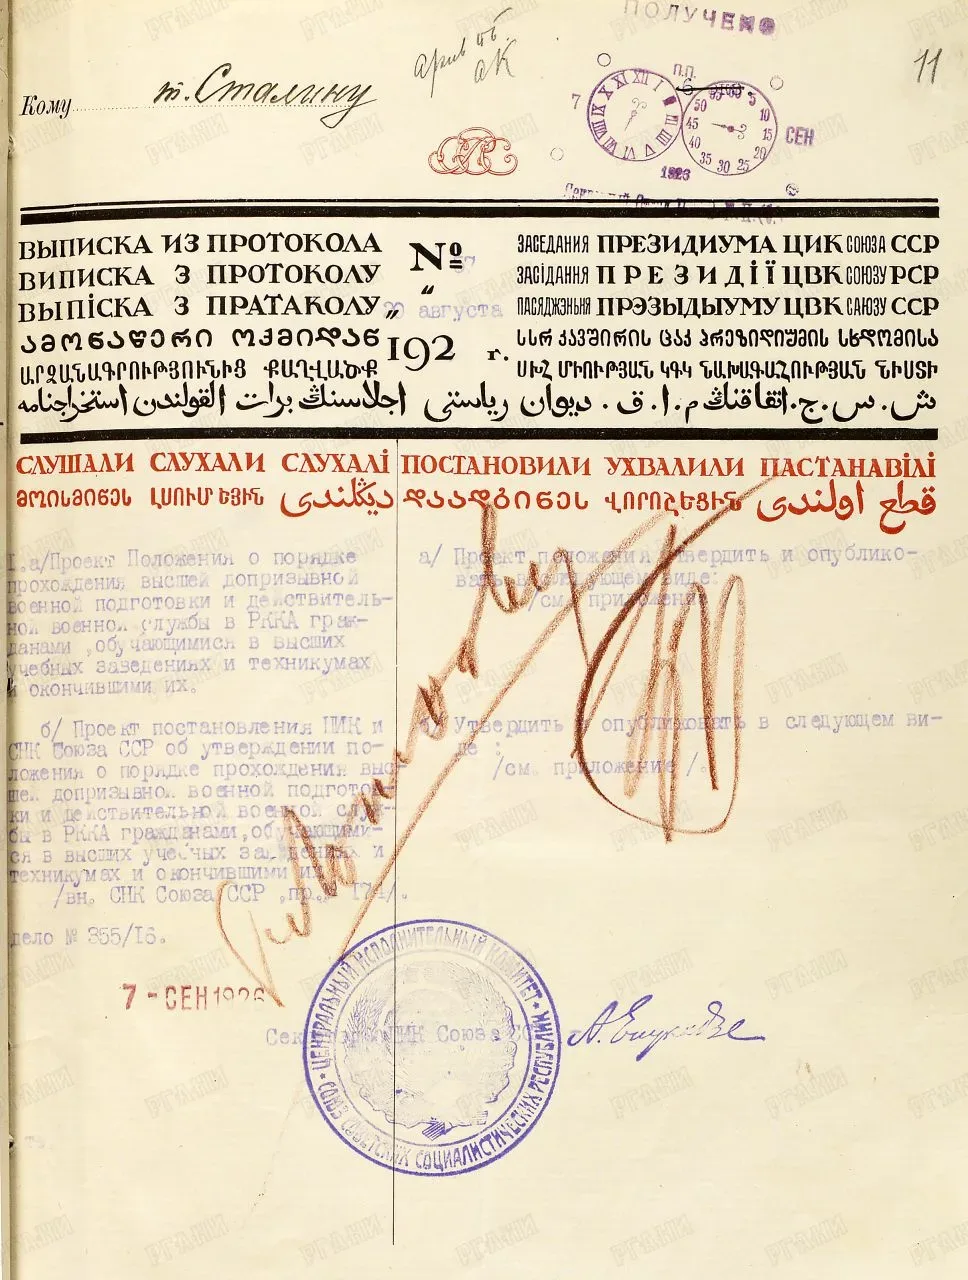 ПОЛУЧЕНО
11
Кому т. Сталину
П.П.
7
СЕН
1923
ВЫПИСКА ИЗ ПРОТОКОЛА № ЗАСЕДАНИЯ ПРЕЗИДИУМА ЦИК СОЮЗА ССР
ВИПИСКА З ПРОТОКОЛУ ЗАСІДАННЯ ПРЕЗИДІЇ ЦВК СОЮЗУ РСР
ВЫПІСКА З ПРАТАКОЛУ „ августа ПАСЯДЖЭНЬНЯ ПРЭЗЫДЫУМУ ЦВК САЮЗУ ССР
ᲐᲛᲝᲜᲐᲬᲔᲠᲘ ᲝᲥᲛᲘᲓᲐᲜ 192 г. ᲡᲡᲠ ᲙᲐᲕᲨᲘᲠᲘᲡ ᲪᲐᲙ ᲞᲠᲔᲖᲘᲓᲘᲣᲛᲘᲡ ᲡᲮᲓᲝᲛᲘᲡᲐ
ԱՐՁԱՆԱԳՐՈՒԹՅՈՒՆԻՑ ՔԱՂՎԱԾՔ ՍԽՀ ՄԻՈՒԹՅԱՆ ԿԳԿ ՆԱԽԱԳԱՀՈՒԹՅԱՆ ՆԻՍՏԻ
ش. س. ج. اتفاقنڭ م. ا. ق. ديوان رياستى اجلاسنڭ برات القولندن استخراجنامه
СЛУШАЛИ СЛУХАЛИ СЛУХАЛІ ПОСТАНОВИЛИ УХВАЛИЛИ ПАСТАНАВІЛІ
ᲛᲝᲘᲡᲛᲘᲜᲔᲡ ԼՍՈՒՄ ԵՅԻՆ ديڭلندى ᲓᲐᲐᲓᲒᲘᲜᲔᲡ ՎՈՐՈՇԵՑԻՆ قطع اولندى
I. а/Проект Положения о порядке
прохождения высшей допризывной
военной подготовки и действитель-
ной военной службы в РККА граж-
данами ,обучающимися в высших
учебных заведениях и техникумах
и окончившими их.
а/ Проект положения утвердить и опублико-
вать в следующем виде:
/см. приложение
б/ Проект постановления ЦИК и
СНК Союза ССР об утверждении по-
ложения о порядке прохождения выс-
шей допризывной военной подготов-
ки и действительной военной служ-
бы в РККА гражданами,обучающими-
ся в высших учебных заведениях и
техникумах и окончившими их
/вн. СНК Союза ССР ,пр.
дело № 355/16.
б/ Утвердить и опубликовать в следующем ви-
де :
/см. приложение /.
7 - СЕН 1926
Секретарь ЦИК Союза ССР А. Енукидзе
ЦЕНТРАЛЬНЫЙ ИСПОЛНИТЕЛЬНЫЙ КОМИТЕТ
СОЮЗ СОВЕТСКИХ СОЦИАЛИСТИЧЕСКИХ РЕСПУБЛИК
РГАНИ